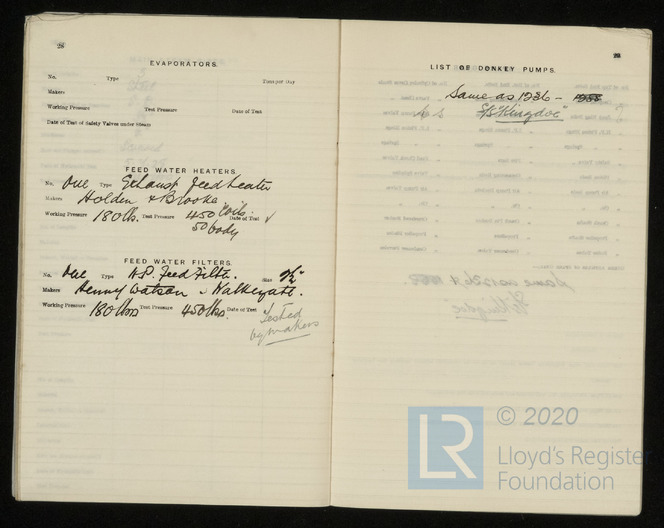 28
EVAPORATORS.
No. Type Tons per Day
Makers
Working Pressure Test Pressure Date of Test
Date of Test of Safety Valves under Steam
FEED WATER HEATERS.
No. One Type Exhaust feed heater
Makers Holden & Brooke
Working Pressure 180 lbs. Test Pressure 450 coils. Date of Test ✓
50 body
FEED WATER FILTERS.
No. One Type H.P. Feed Filter. Size
Makers Henry Watson, Walkergate.
Working Pressure 180 lbs Test Pressure 450 lbs. Date of Test Tested
by makers
29
LIST OF DONKEY PUMPS.
Same as 1236 -
S/S "Kingdoc"
© 2020
LR
Lloyd's Register
Foundation